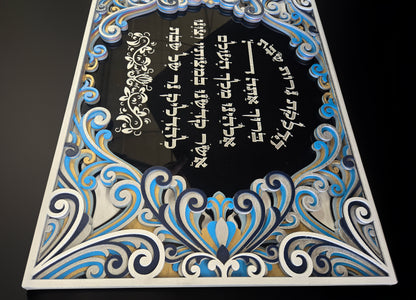 הדלקת נרות שבת
ברוך אתה ה׳
אלהינו מלך העולם
אשר קדשנו במצותיו וצונו
להדליק נר של שבת